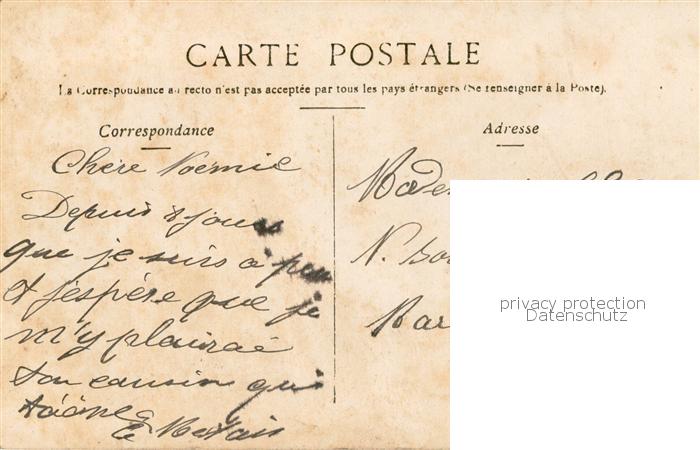 CARTE POSTALE
La Correspondance au recto n'est pas acceptée par tous les pays étrangers (Se renseigner à la Poste).
Correspondance
Adresse
Chère Noémie
Depuis 8 jours
que je suis a
et j'espère que je
m'y plairai
ton cousin qui
t'aime
E
N.
privacy protection
Datenschutz